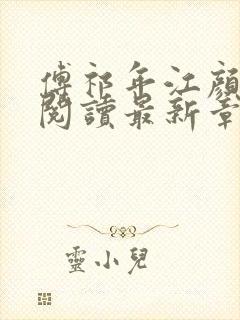 傅祁年江顏
閱讀最新章
靈小兒